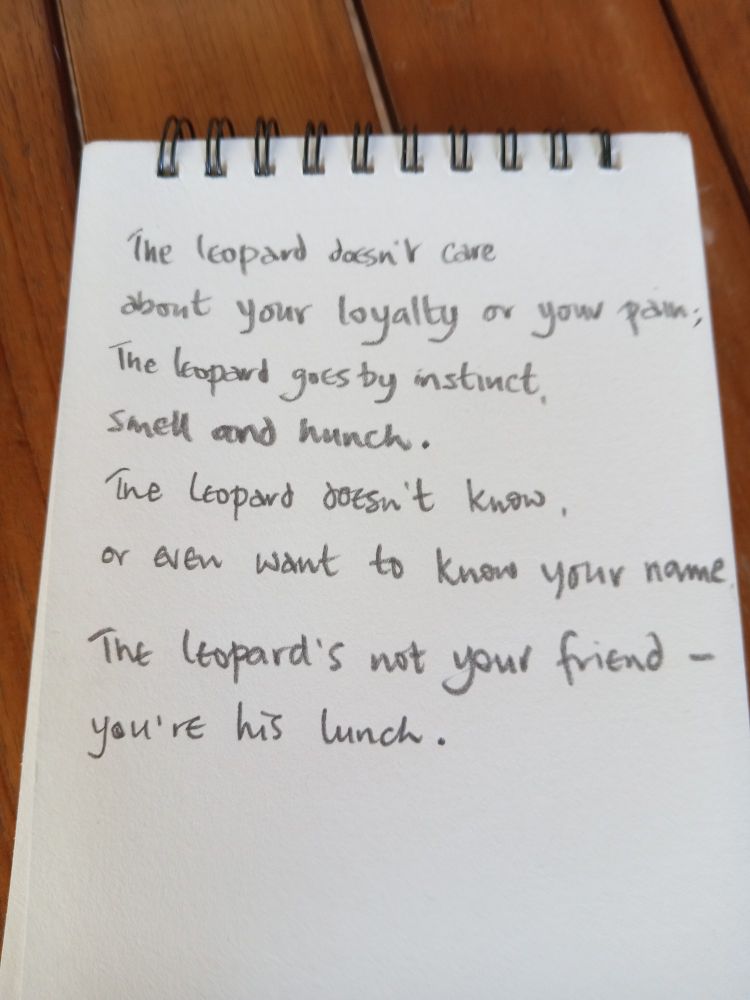 The leopard doesn't care
about your loyalty or your pain;
The leopard goes by instinct,
smell and hunch.
The leopard doesn't know,
or even want to know your name.
The leopard's not your friend –
you're his lunch.